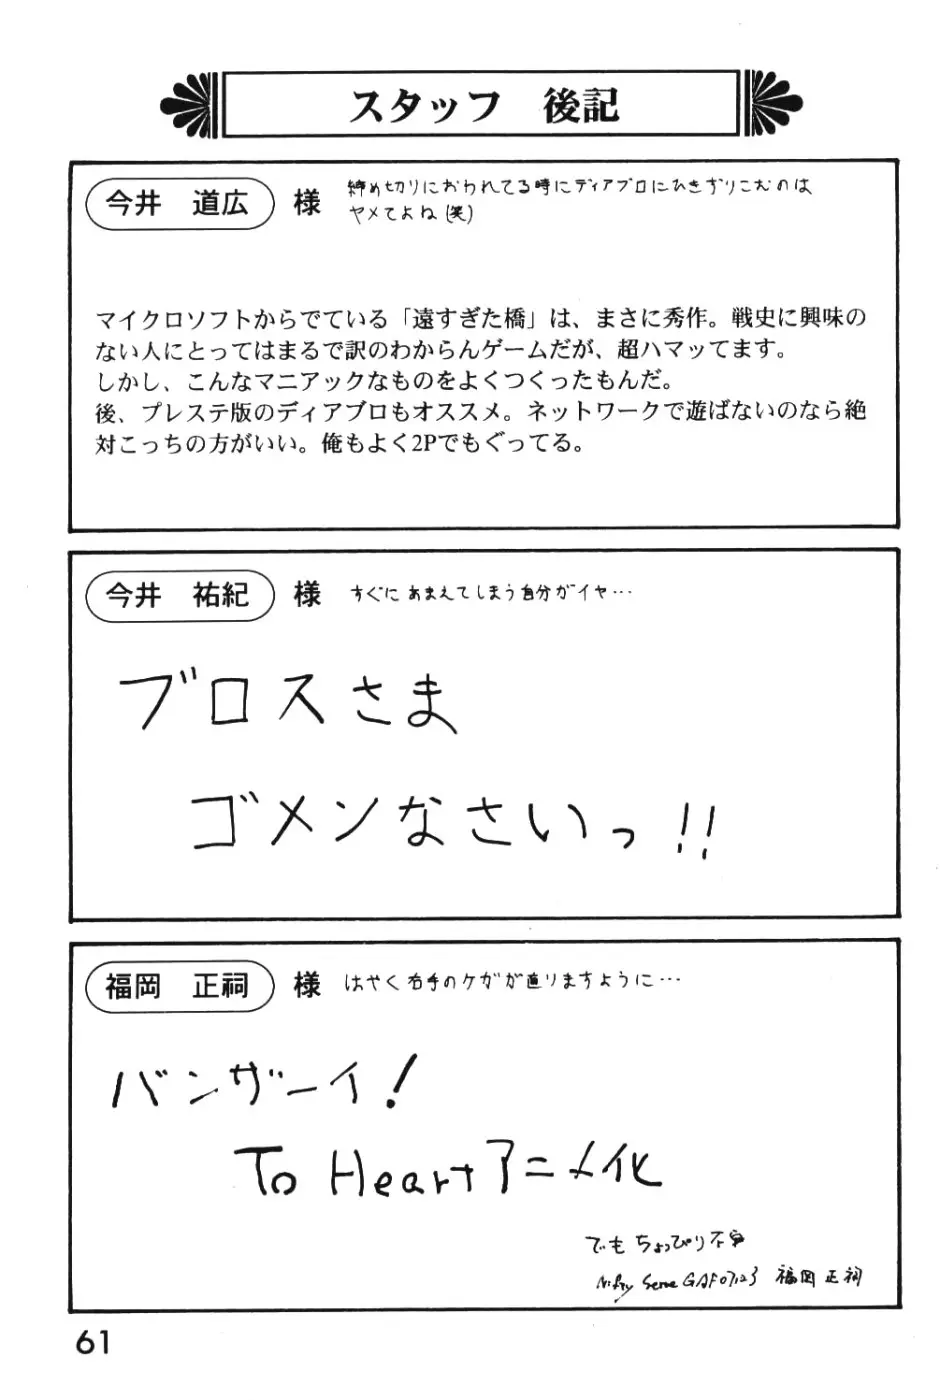 スタッフ 後記
今井 道広 様
締め切りにおわれてる時にディアブロにひきずりこむのは
ヤメてよね(笑)
マイクロソフトからでている「遠すぎた橋」は、まさに秀作。戦史に興味の
ない人にとってはまるで訳のわからんゲームだが、超ハマッてます。
しかし、こんなマニアックなものをよくつくったもんだ。
後、プレステ版のディアブロもオススメ。ネットワークで遊ばないのなら絶
対こっちの方がいい。俺もよく2Pでもぐってる。
今井 祐紀 様 すぐにあまえてしまう自分がイヤ…
ブロスさま
ゴメンなさいっ!!
福岡 正祠 様 はやく右手のケガが直りますように…
バンザーイ!
To Heartアニメ化
でもちょっぴり不安
Nifty Serve GAF07123 福岡 正祠
61